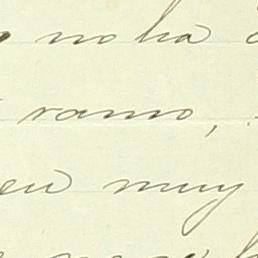 no ha
ramo,
en muy